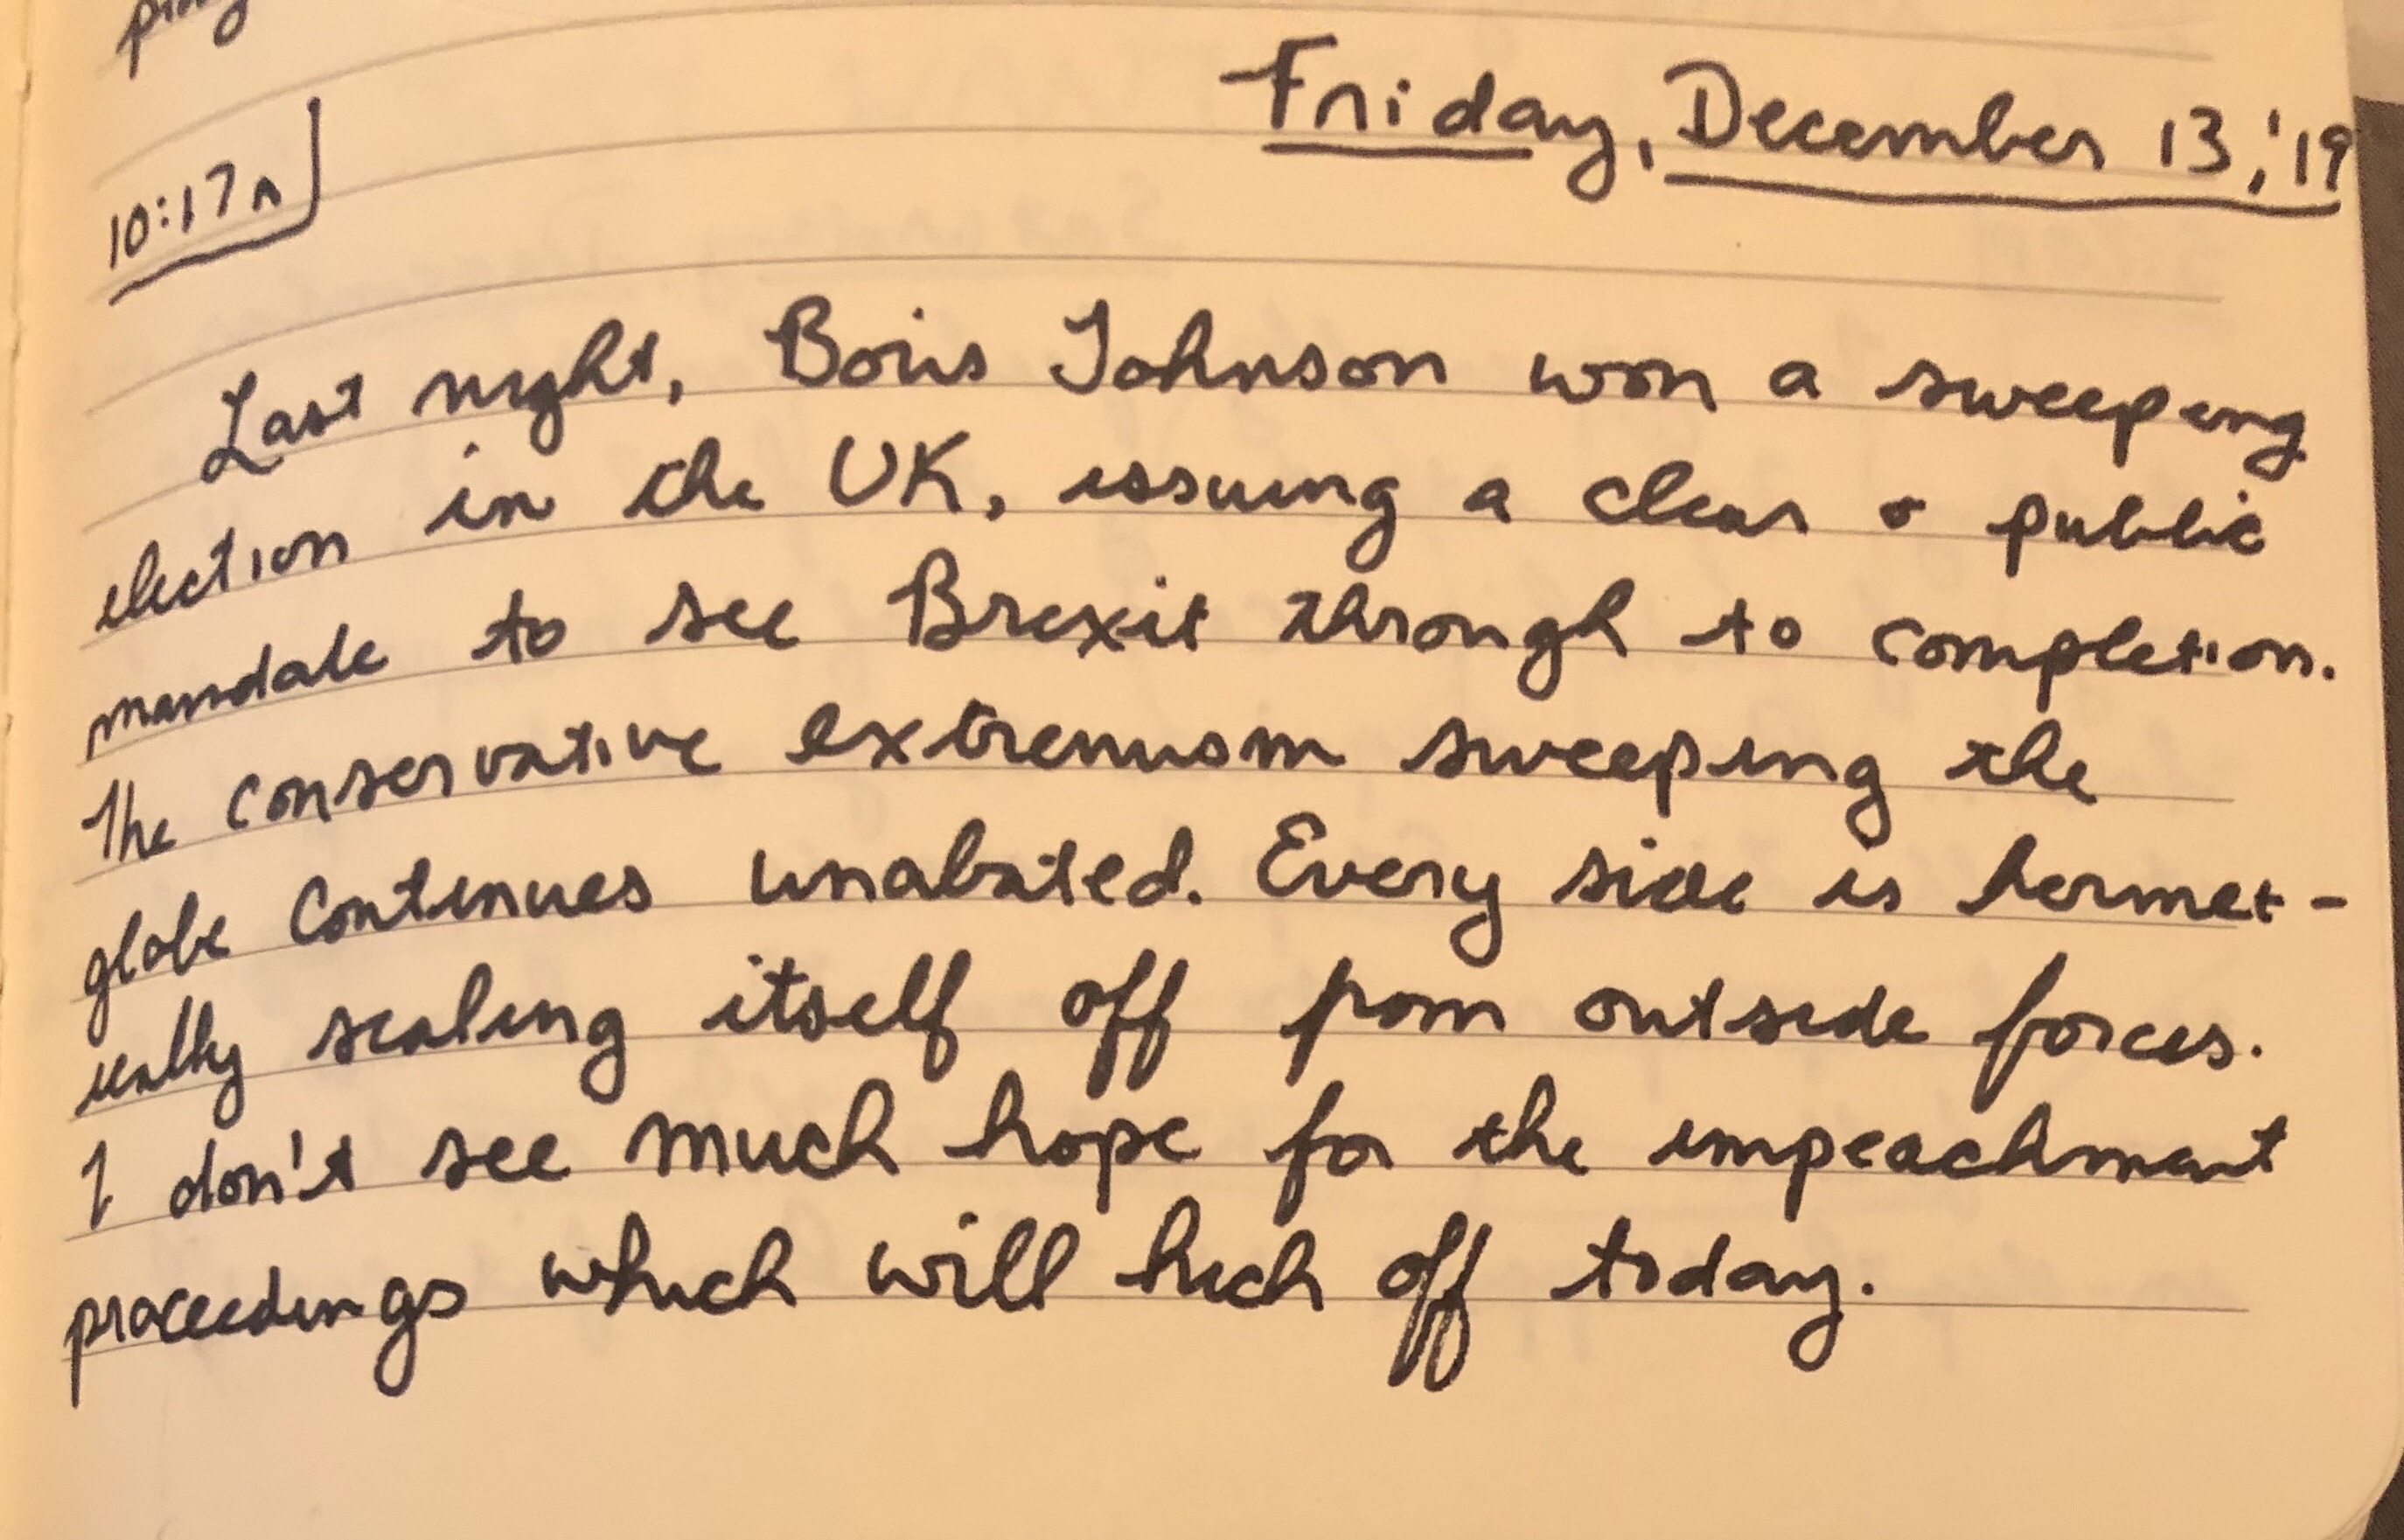 Friday, December 13, '19
10:17A
Last night, Boris Johnson won a sweeping
election in the UK, issuing a clear & public
mandate to see Brexit through to completion.
The conservative extremism sweeping the
globe continues unabated. Every side is hermet-
ically sealing itself off from outside forces.
I don't see much hope for the impeachment
proceedings which will kick off today.